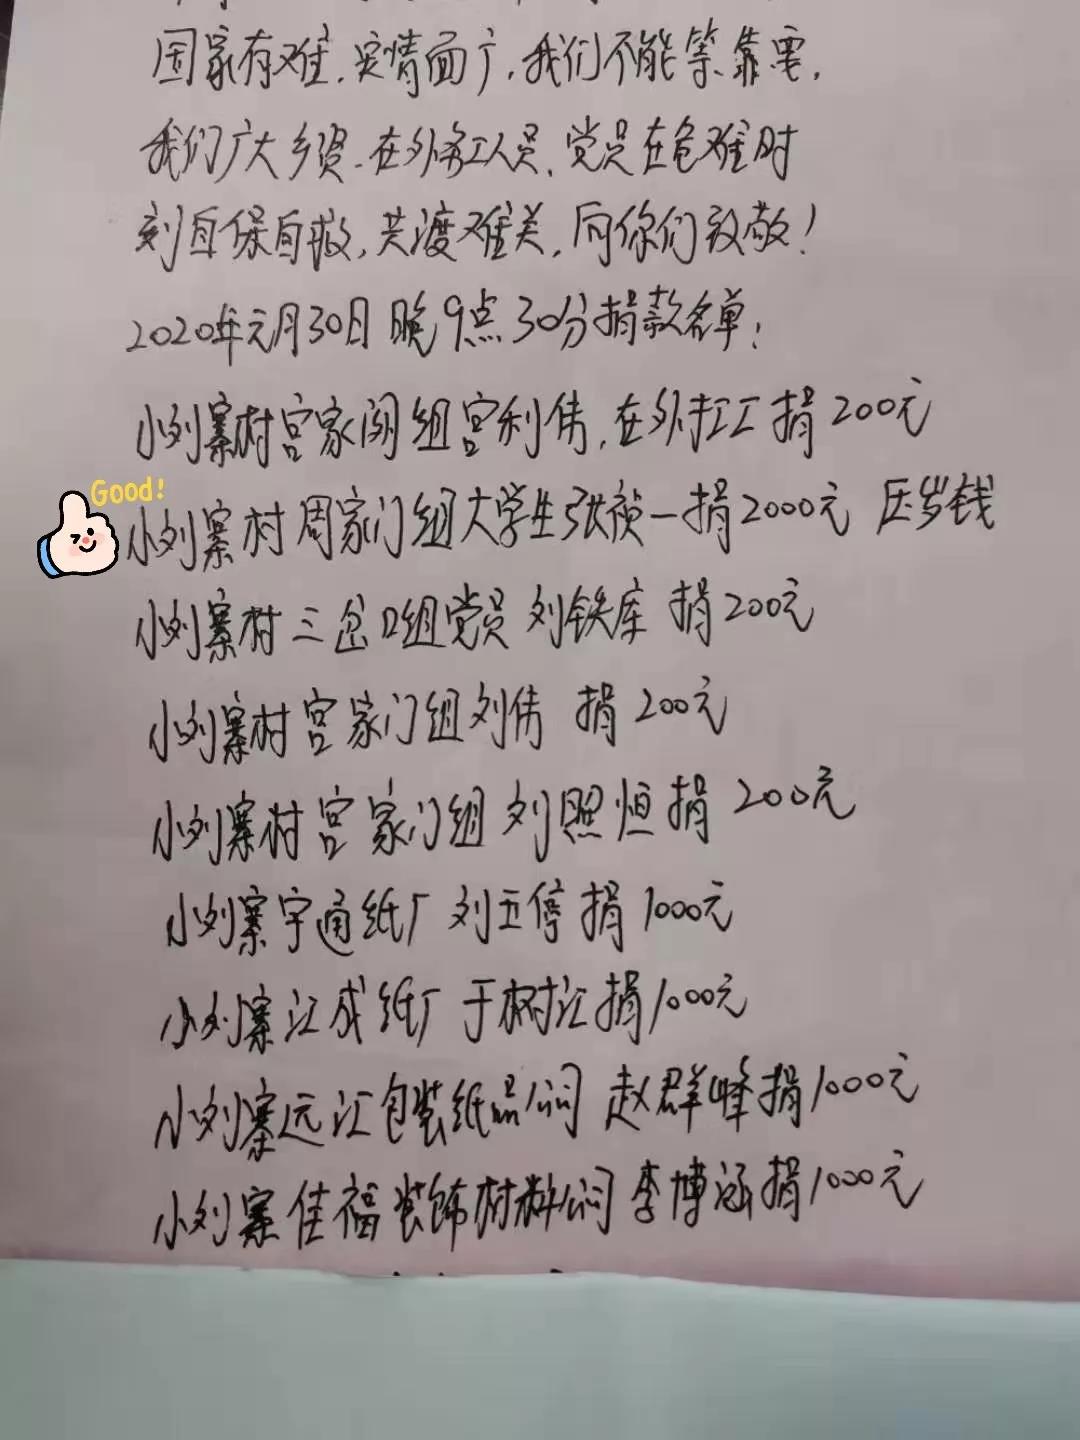 国家有难,灾情面广,我们不能等、靠要,
我们广大乡贤、在外务工人员、党员在危难时
刻自保自救,共渡难关,向你们致敬!
2020年元月30日晚9点30分捐款名单:
小刘寨村宫家门组宫利伟,在外打工捐200元
Good!
小刘寨村周家门组大学生张祯一捐2000元 压岁钱
小刘寨村三岔口组党员刘铁库 捐200元
小刘寨村宫家门组刘伟 捐200元
小刘寨村宫家门组刘照恒捐200元
小刘寨宇通纸厂刘玉停捐1000元
小刘寨江成纸厂于树江捐1000元
小刘寨远汇包装纸品公司 赵群峰捐1000元
小刘寨佳福装饰材料公司 李博涵捐1000元